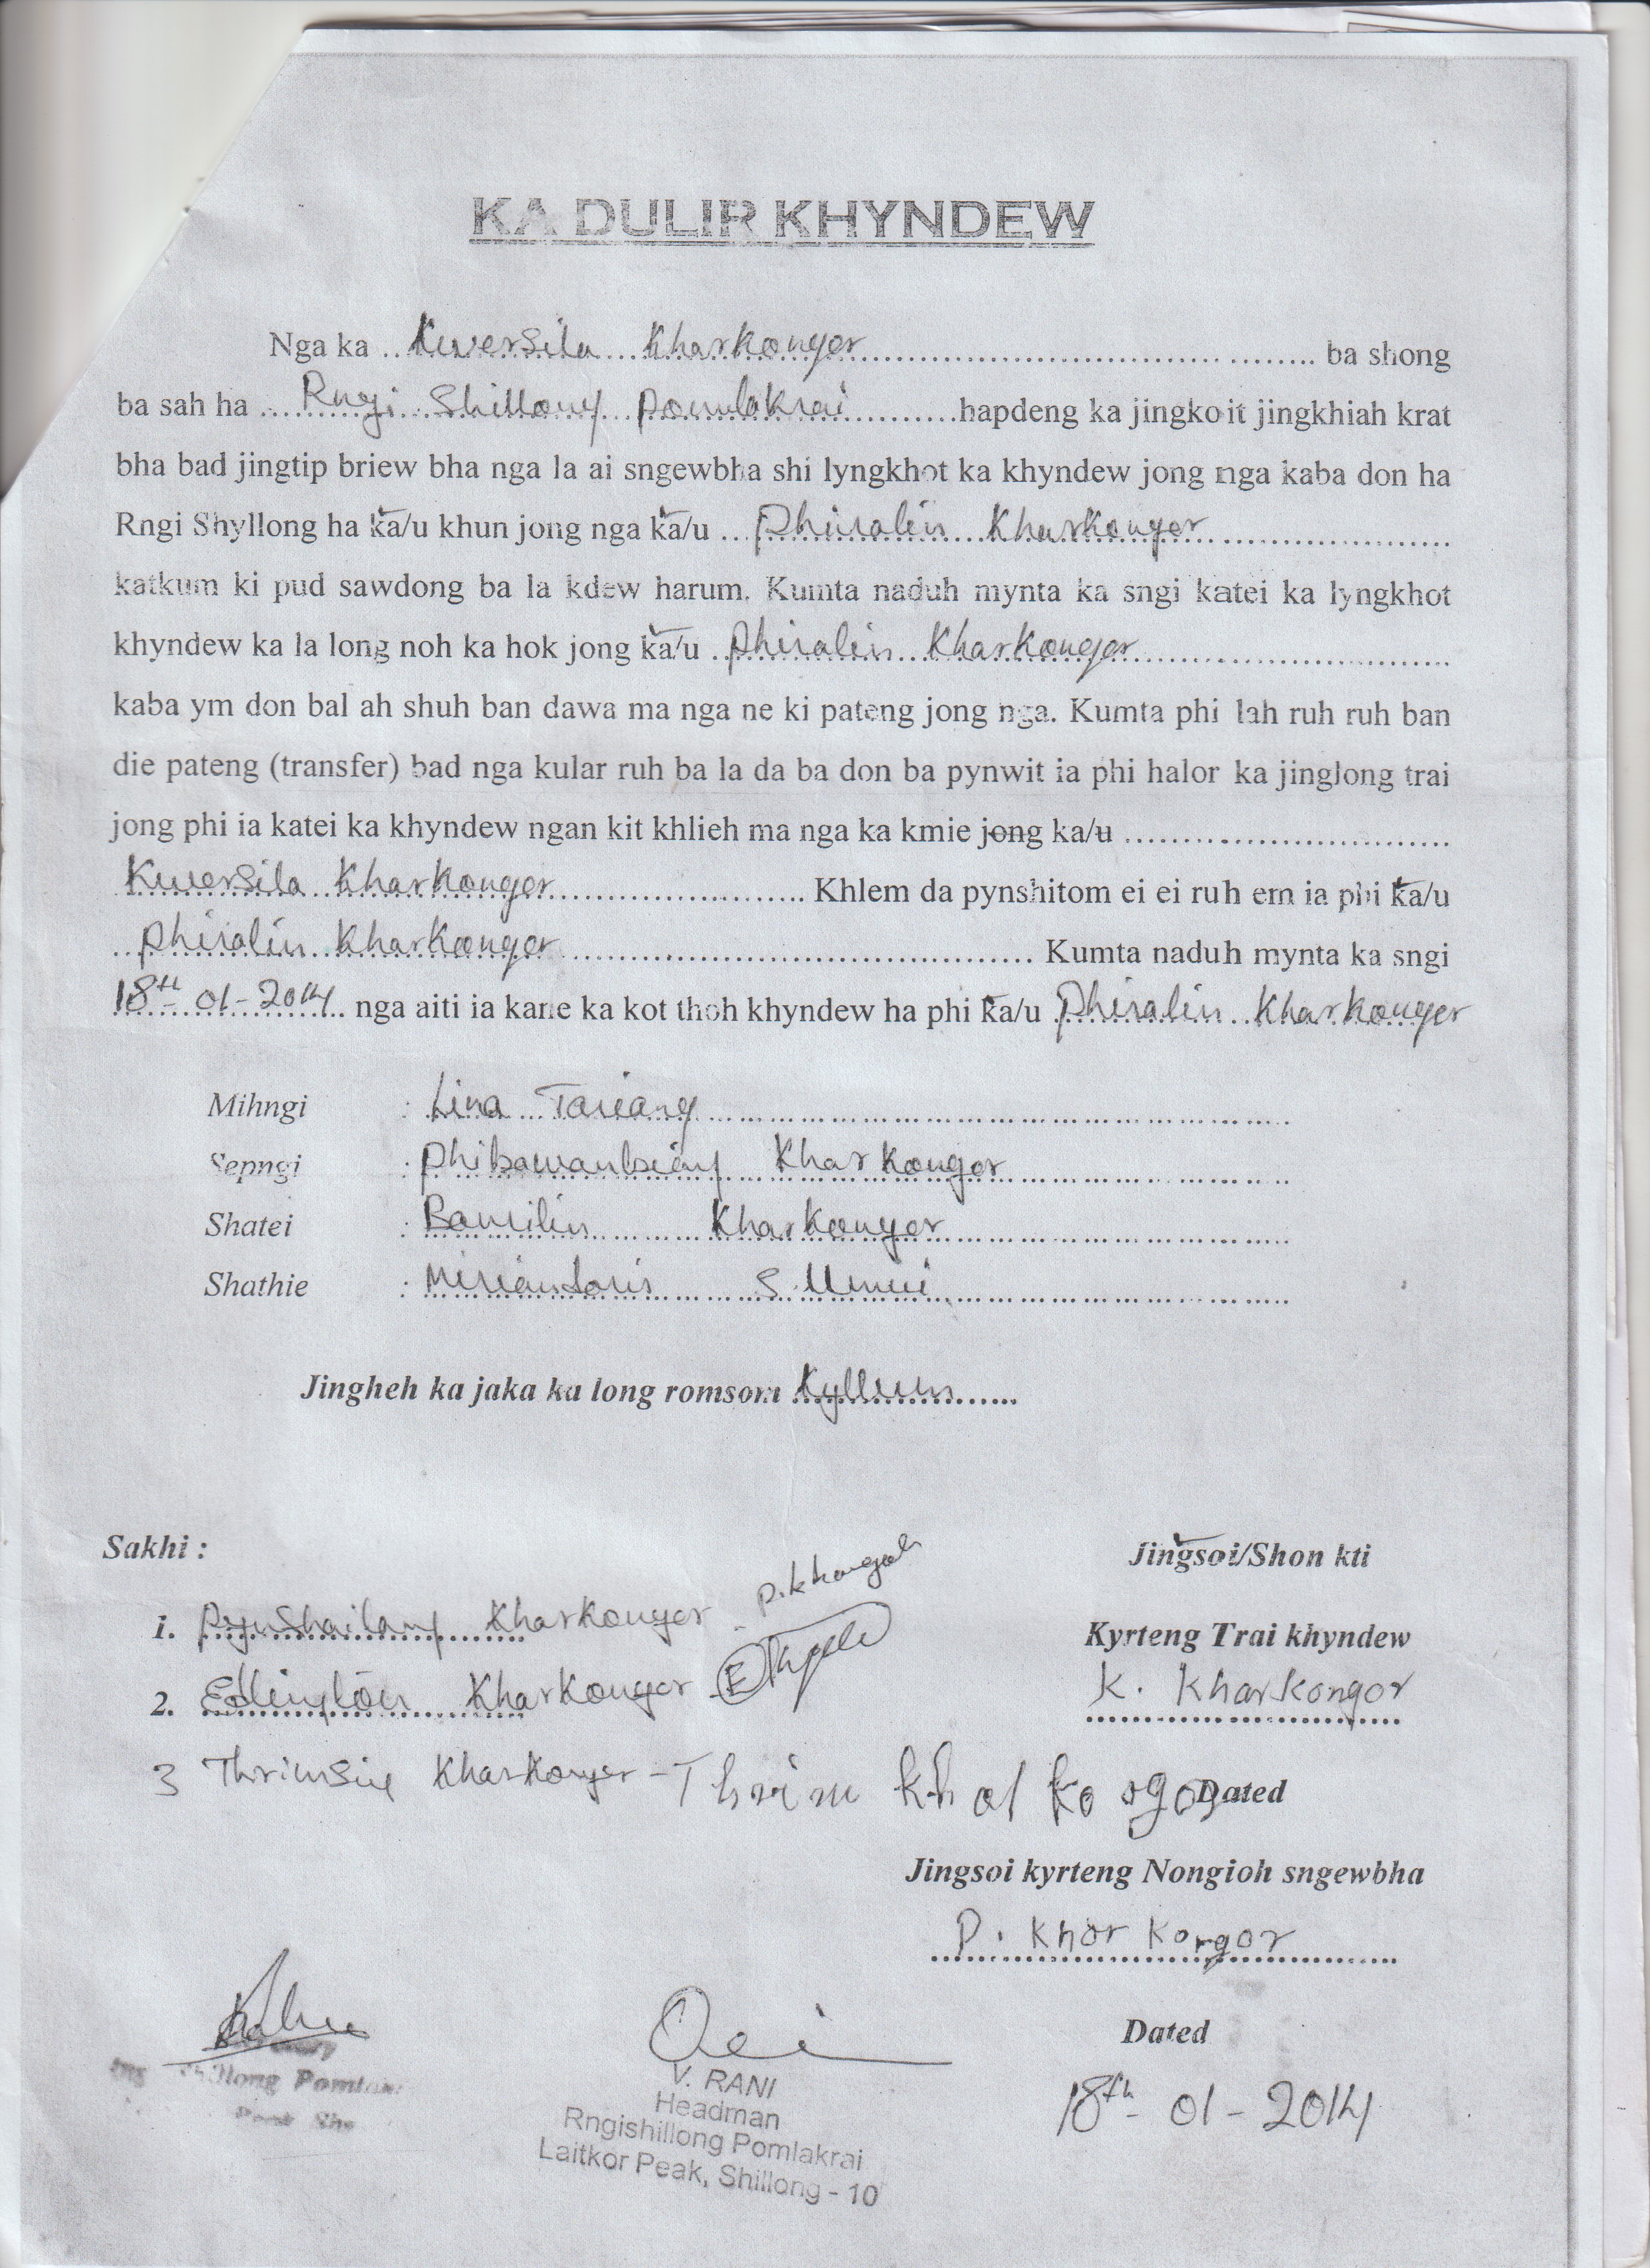 KA DULIR KHYNDEW
Nga ka ... Kwersila Kharkongor ... ba shong
ba sah ha ... Rngi Shillong Pomlakrai ... hapdeng ka jingkoit jingkhiah krat
bha bad jingtip briew bha nga la ai sngewbha shi lyngkhot ka khyndew jong nga kaba don ha
Rngi Shyllong ha ka/u khun jong nga ka/u ... Phiralin Kharkongor ...
katkum ki pud sawdong ba la kdew harum. Kumta naduh mynta ka sngi katei ka lyngkhot
khyndew ka la long noh ka hok jong ka/u ... Phiralin Kharkongor ...
kaba ym don bal ah shuh ban dawa ma nga ne ki pateng jong nga. Kumta phi lah ruh ruh ban
die pateng (transfer) bad nga kular ruh ba la da ba don ba pynwit ia phi halor ka jinglong trai
jong phi ia katei ka khyndew ngan kit khlieh ma nga ka kmie jong ka/u ...
Kwersila Kharkongor ... Khlem da pynshitom ei ei ruh em ia phi ka/u
... Phiralin Kharkongor ... Kumta naduh mynta ka sngi
18th- 01-2014 ... nga aiti ia kane ka kot thoh khyndew ha phi ka/u Phiralin Kharkongor
Mihngi : Lina Tariang
Sepngi : Phibawanbiang Kharkongor
Shatei : Bamilin Kharkongor
Shathie : S. Umwi
Jingheh ka jaka ka long romsom Kyllum
Sakhi :
Jingsoi/Shon kti
1. Pynshailang Kharkongor
Kyrteng Trai khyndew
2. Edlington Kharkongor
K. Kharkongor
3 Thrimsie Kharkongor - Thrim khar kongor
Dated
Jingsoi kyrteng Nongioh sngewbha
P. Khar Kongor
Dated
18th- 01-2014
Shillong
V. RANI
Headman
Rngishillong Pomlakrai
Laitkor Peak, Shillong - 10